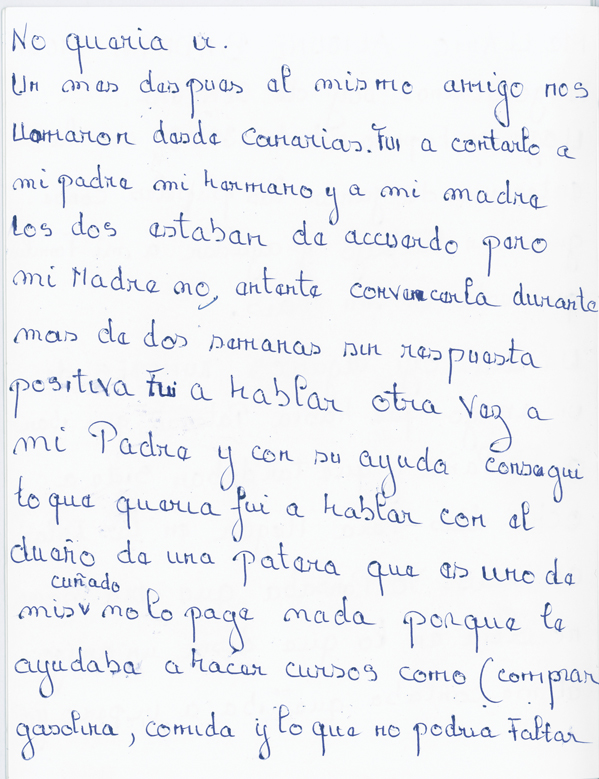 No queria ir.
Un mes despues el mismo amigo nos
llamaron desde Canarias. Fui a contarlo a
mi padre mi hermano y a mi madre
los dos estaban de accuerdo pero
mi Madre no, entente convencerla durante
mas de dos semanas sin respuesta
positiva Fui a hablar otra vez a
mi Padre y con su ayuda consegui
lo que queria fui a hablar con el
dueño de una patera que es uno de
cuñado
mis v no lo page nada porque le
ayudaba a hacer cursos como (comprar
gasolina, comida y lo que no podria Faltar